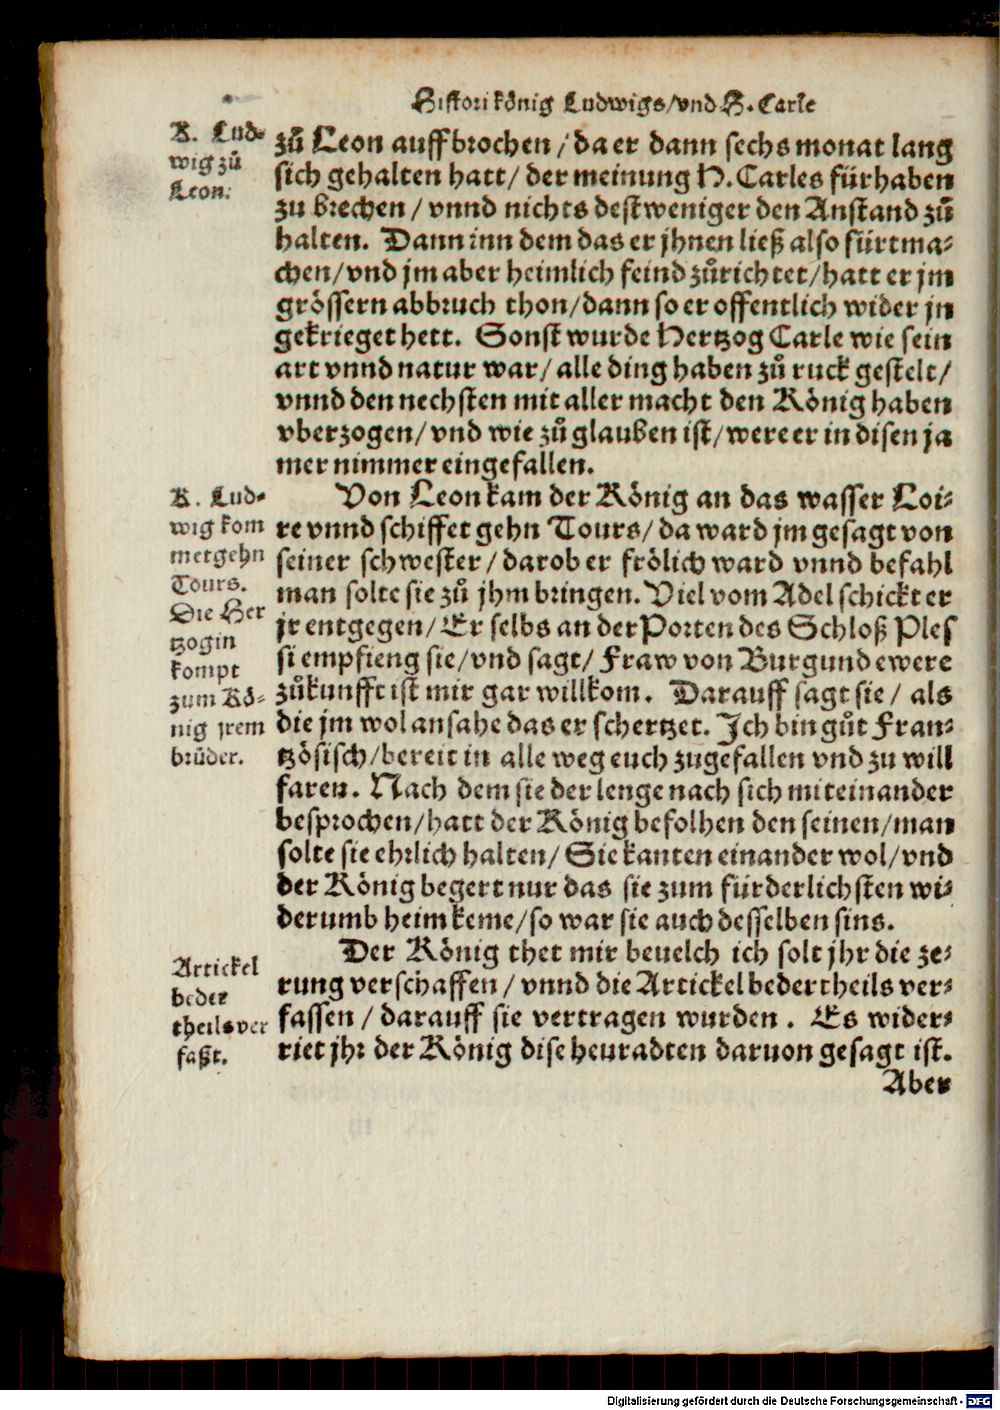 Histori könig Ludwigs/vnd H. Carle
K. Lud-
wig zů
Leon.
zů Leon auffbrochen / da er dann sechs monat lang
sich gehalten hatt / der meinung H. Carles fürhaben
zu brechen / vnnd nichts destweniger den Anstand zů
halten. Dann inn dem das er jhnen ließ also fürtma-
chen/vnd jm aber heimlich feind zůrichtet/hatt er jm
grössern abbruch thon/dann so er offentlich wider jn
gekrieget hett. Sonst wurde Hertzog Carle wie sein
art vnnd natur war/ alle ding haben zů ruck gestelt/
vnnd den nechsten mit aller macht den König haben
vberzogen/ vnd wie zů glauben ist/ were er in disen ja
mer nimmer eingefallen.
K. Lud-
wig kom
met gehn
Tours.
Die Her
tzogin
kompt
zum Kö-
nig jrem
brüder.
Von Leon kam der König an das wasser Loi-
re vnnd schiffet gehn Tours/ da ward jm gesagt von
seiner schwester / darob er frölich ward vnnd befahl
man solte sie zů jhm bringen. Viel vom Adel schickt er
jr entgegen/ Er selbs an der Porten des Schloß Ples
si empfieng sie/vnd sagt/ Fraw von Burgund ewere
zůkunfft ist mir gar willkom. Darauff sagt sie / als
die jm wol ansahe das er schertzet. Ich bin gůt Fran-
tzösisch/bereit in alle weg euch zugefallen vnd zu will
faren. Nach dem sie der lenge nach sich miteinander
besprochen/hatt der König befolhen den seinen/man
solte sie ehrlich halten/ Sie kanten einander wol/vnd
der König begert nur das sie zum fürderlichsten wi-
derumb heim keme/so war sie auch desselben sins.
Artickel
beder
theils ver
faßt.
Der König thet mir beuelch ich solt jhr die ze-
rung verschaffen / vnnd die Artickel beder theils ver-
fassen / darauff sie vertragen wurden . Es wider-
riet jhr der König dise heuradten daruon gesagt ist.
Aber
Digitalisierung gefördert durch die Deutsche Forschungsgemeinschaft - DFG